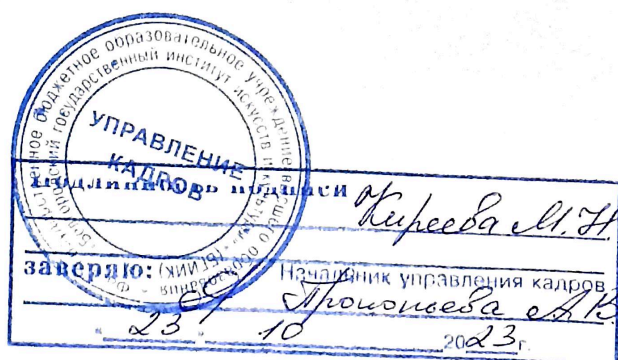 бюджетное образовательное учреждение высшего образования
государственный институт искусств и культуры» (БГИИК)
УПРАВЛЕНИЕ
КАДРОВ
подлинность подписи
Киреева М.Н.
заверяю:
Начальник управления кадров
Прокопьева А.В.
" 23 " 10 2023 г.